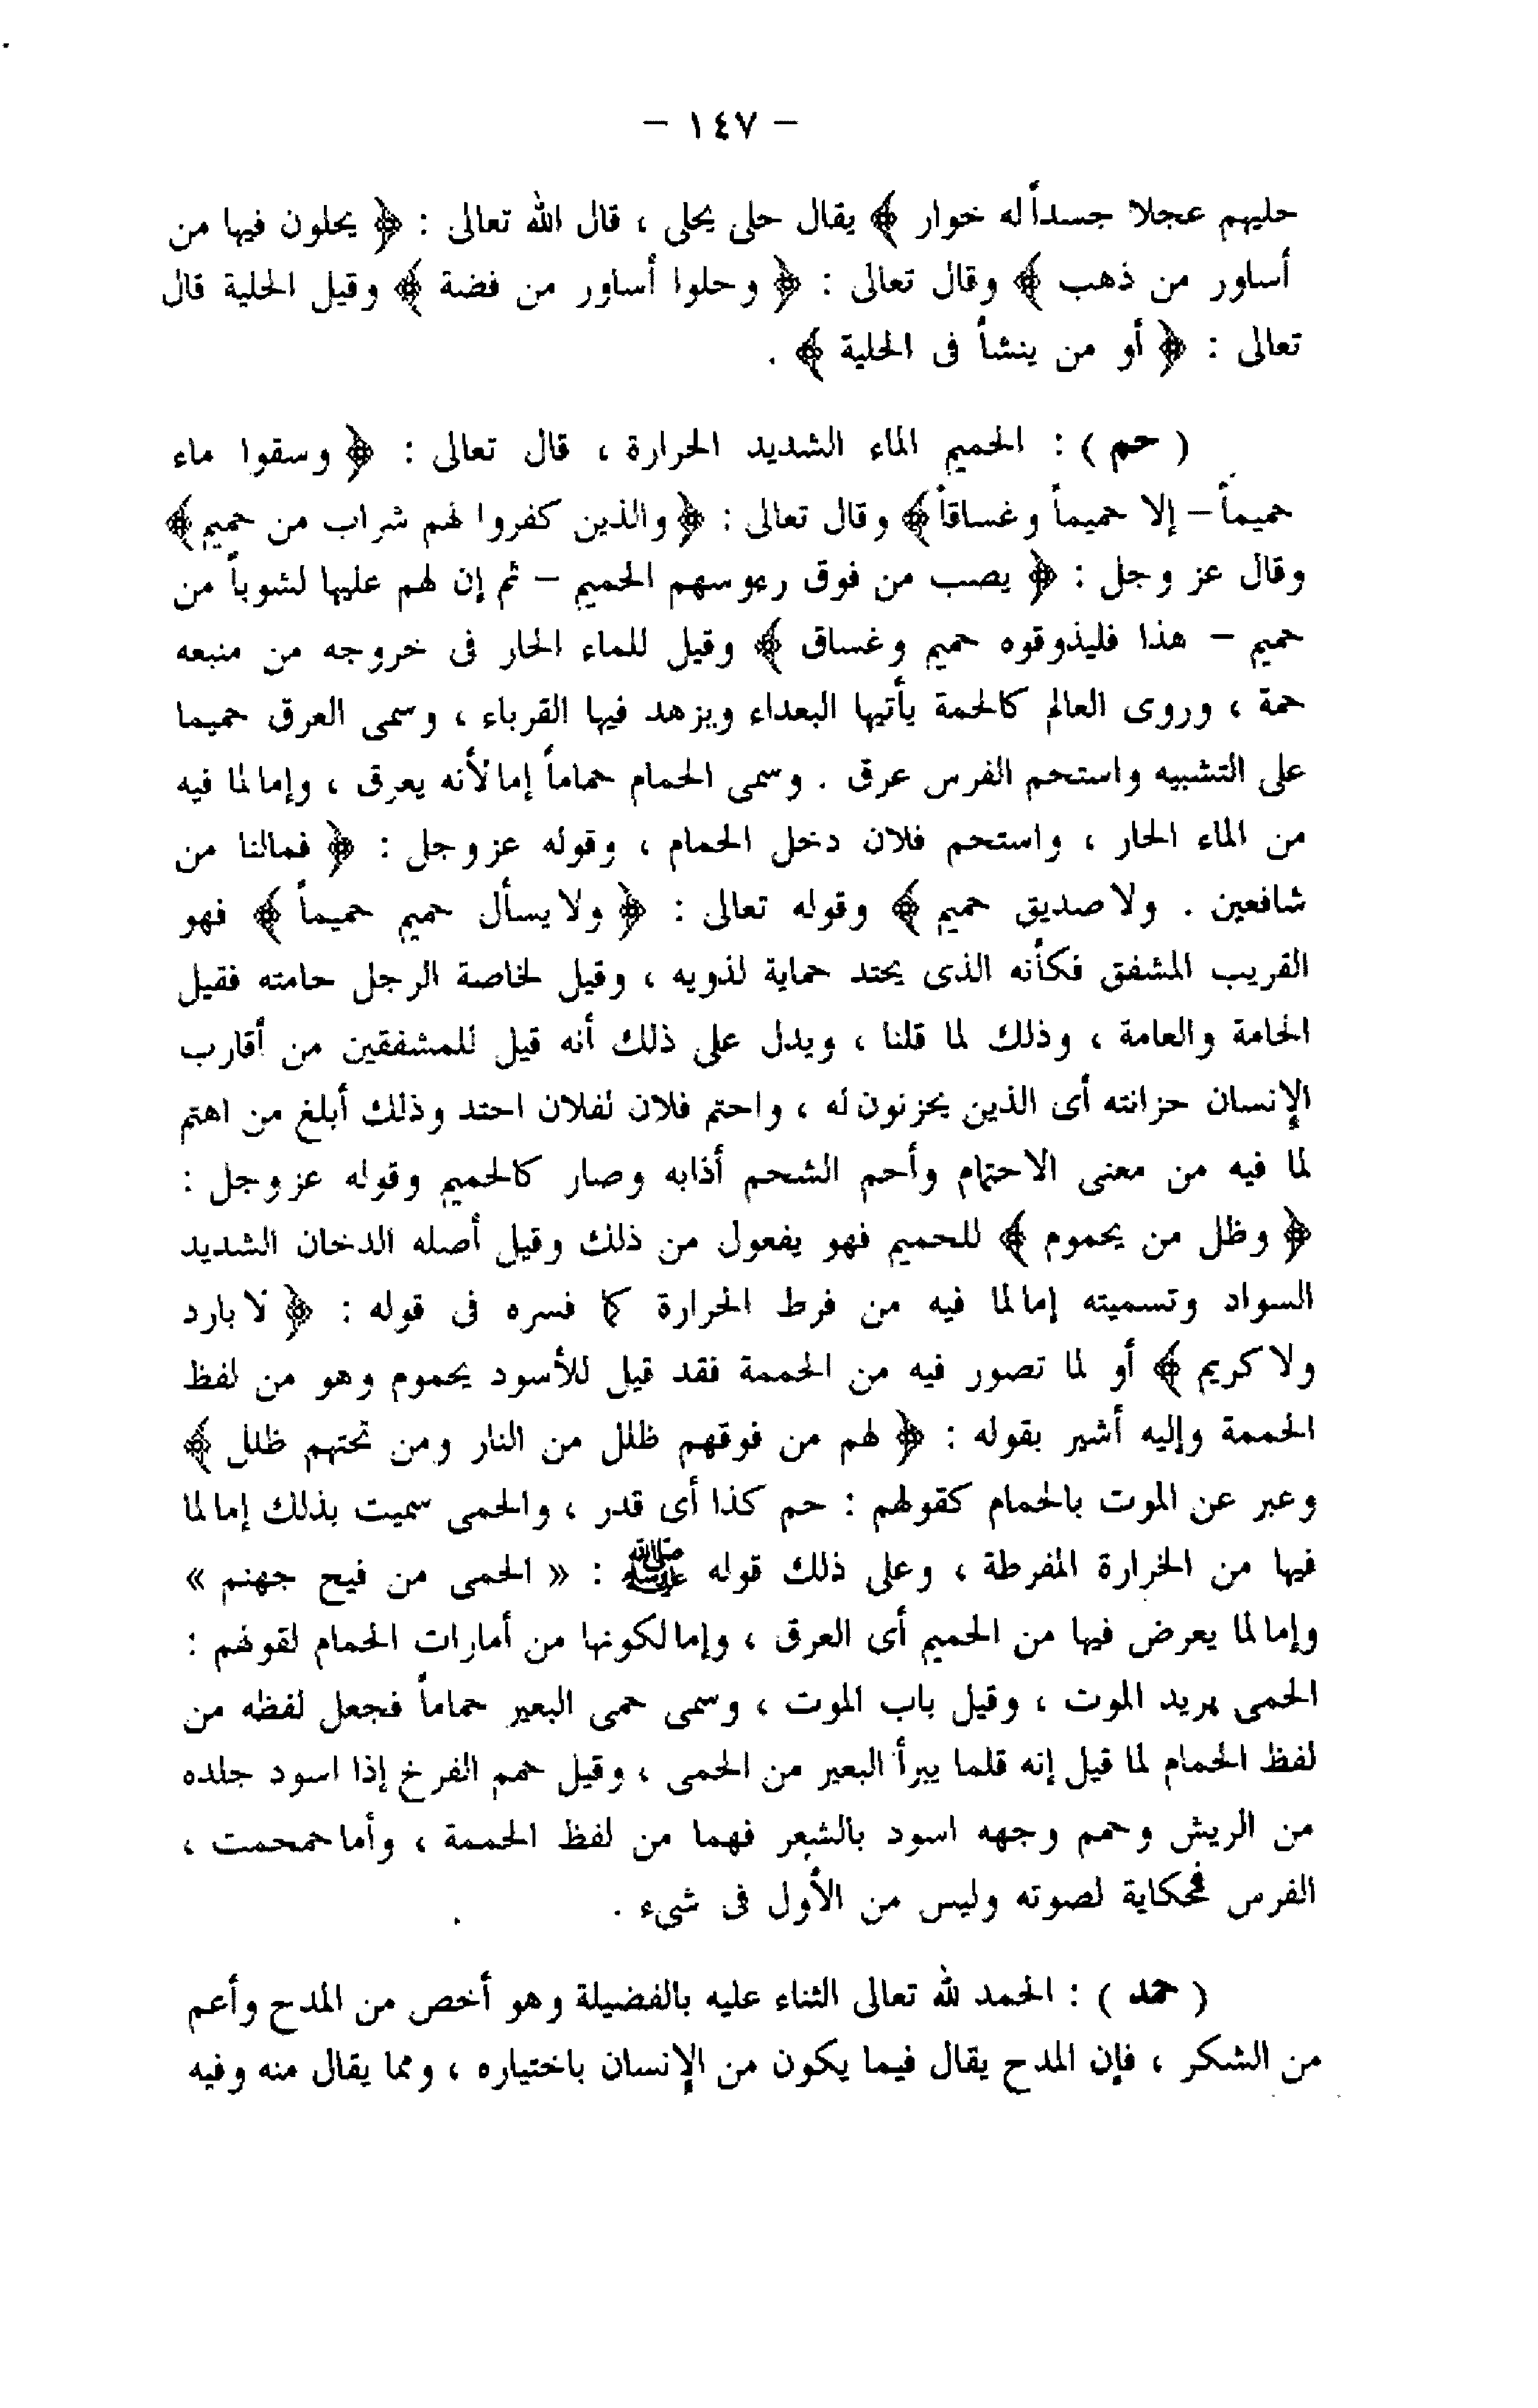 - ١٤٧ -
حليهم عجلا جسداً له خوار ﴾ يقال حلى يحلى ، قال الله تعالى : ﴿ يحلون فيها من
أساور من ذهب ﴾ وقال تعالى : ﴿ وحلوا أساور من فضة ﴾ وقيل الحلية قال
تعالى : ﴿ أو من ينشأ فى الحلية ﴾ .
( حم ) : الحميم الماء الشديد الحرارة ، قال تعالى : ﴿ وسقوا ماء
حميماً - إلا حميماً وغساقاً ﴾ وقال تعالى : ﴿ والذين كفروا لهم شراب من حميم ﴾
وقال عز وجل : ﴿ يصب من فوق رءوسهم الحميم - ثم إن لهم عليها لشوباً من
حميم - هذا فليذوقوه حميم وغساق ﴾ وقيل للماء الحار فى خروجه من منبعه
حمة ، وروى العالم كالحمة يأتيها البعداء ويزهد فيها القرباء ، وسمى العرق حميما
على التشبيه واستحم الفرس عرق . وسمى الحمام حماماً إما لأنه يعرق ، وإما لما فيه
من الماء الحار ، واستحم فلان دخل الحمام ، وقوله عز وجل : ﴿ فمالنا من
شافعين . ولا صديق حميم ﴾ وقوله تعالى : ﴿ ولا يسأل حميم حميماً ﴾ فهو
القريب المشفق فكأنه الذى يحتد حماية لذويه ، وقيل لخاصة الرجل حامته فقيل
الحامة والعامة ، وذلك لما قلنا ، ويدل على ذلك أنه قيل للمشفقين من أقارب
الإنسان حزانته أى الذين يحزنون له ، واحتم فلان لفلان احتد وذلك أبلغ من اهتم
لما فيه من معنى الاحتمام وأحم الشحم أذابه وصار كالحميم وقوله عز وجل :
﴿ وظل من يحموم ﴾ للحميم فهو يفعول من ذلك وقيل أصله الدخان الشديد
السواد وتسميته إما لما فيه من فرط الحرارة كما فسره فى قوله : ﴿ لا بارد
ولا كريم ﴾ أو لما تصور فيه من الحممة فقد قيل للأسود يحموم وهو من لفظ
الحممة وإليه أشير بقوله : ﴿ لهم من فوقهم ظلل من النار ومن تحتهم ظلل ﴾
وعبر عن الموت بالحمام كقولهم : حم كذا أى قدر ، والحمى سميت بذلك إما لما
فيها من الحرارة المفرطة ، وعلى ذلك قوله ﷺ : « الحمى من فيح جهنم »
وإما لما يعرض فيها من الحميم أى العرق ، وإما لكونها من أمارات الحمام لقولهم :
الحمى بريد الموت ، وقيل باب الموت ، وسمى حمى البعير حماماً فجعل لفظه من
لفظ الحمام لما قيل إنه قلما يبرأ البعير من الحمى ، وقيل حمم الفرخ إذا اسود جلده
من الريش وحمم وجهه اسود بالشعر فهما من لفظ الحممة ، وأما حمحمت ،
الفرس فحكاية لصوته وليس من الأول فى شىء .
( حمد ) : الحمد لله تعالى الثناء عليه بالفضيلة وهو أخص من المدح وأعم
من الشكر ، فإن المدح يقال فيما يكون من الإنسان باختياره ، ومما يقال منه وفيه